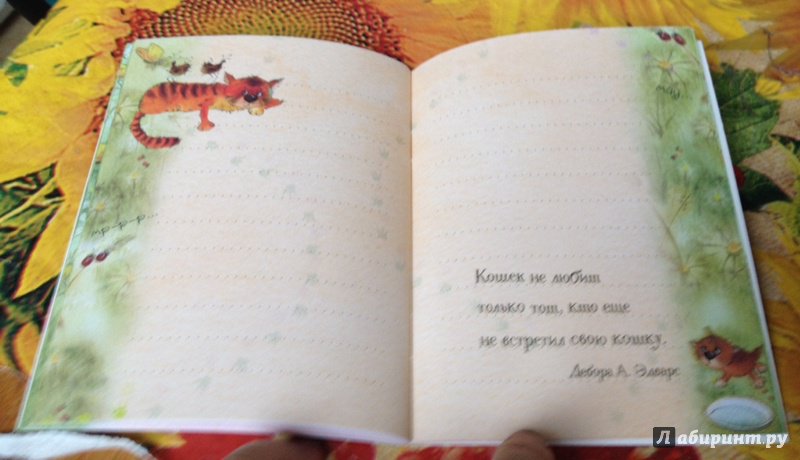 мр-р-р...
мяу
Кошек не любит
только тот, кто еще
не встретил свою кошку.
Дебора А. Эдвардс
Лабиринт.ру